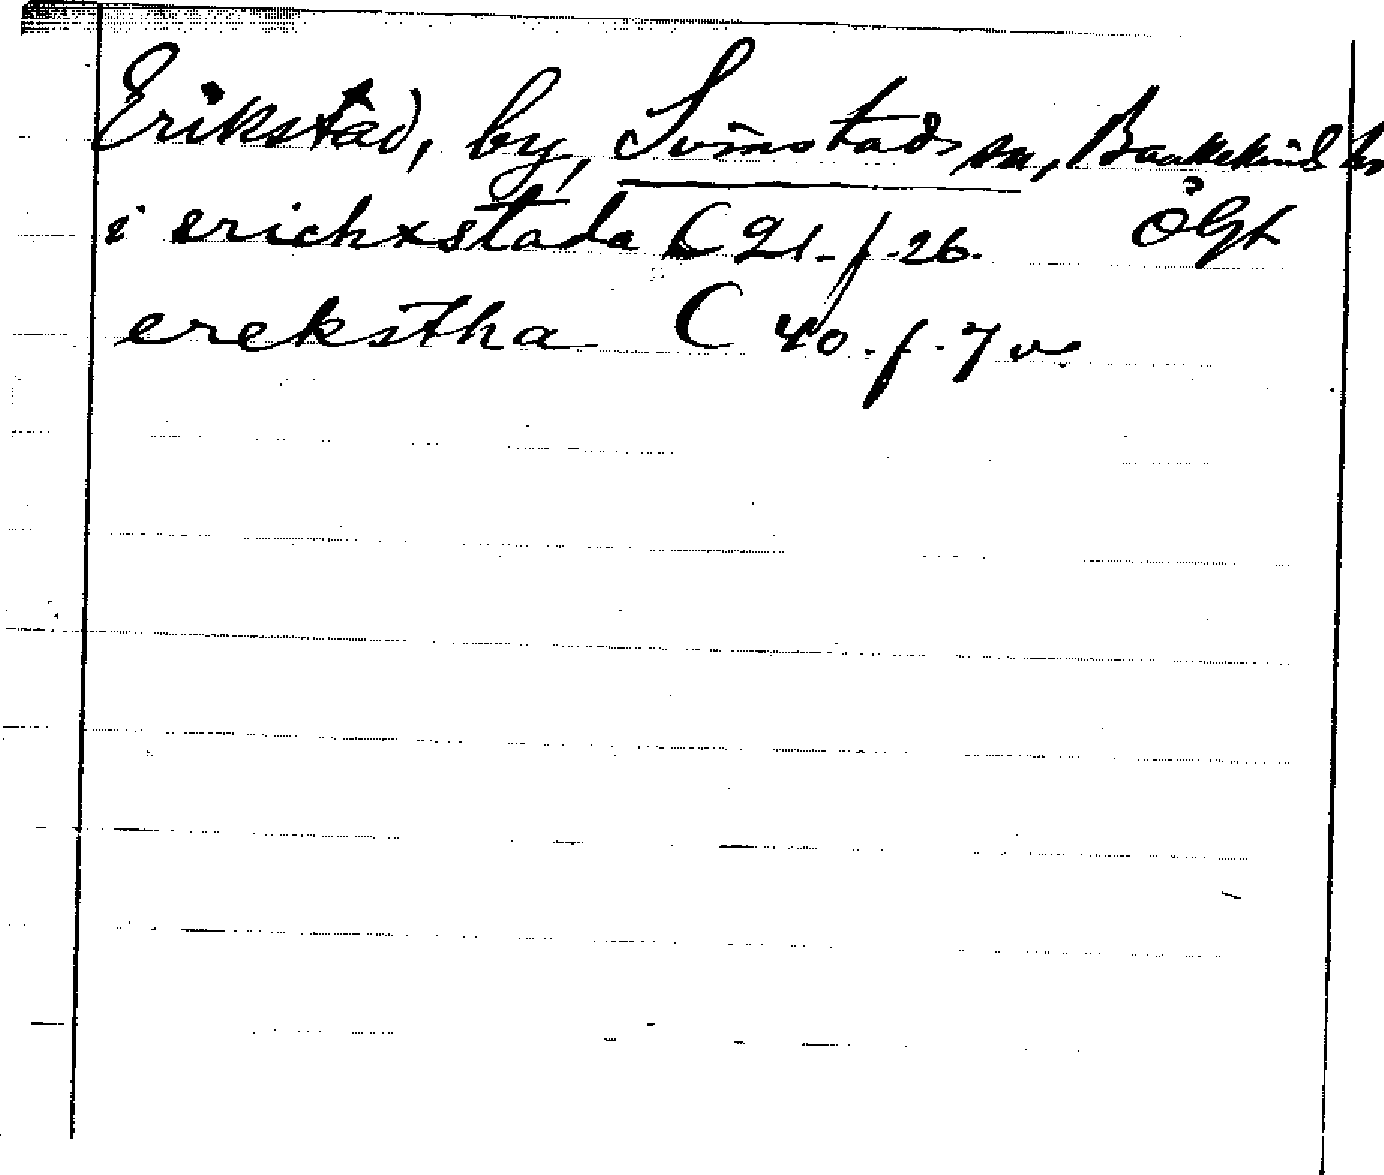 Erikstad, by, Svinstads sn, Bankekinds hd
i erichxstada C 21. f. 26. Ögt
erekstha C 40. f. 7 v.